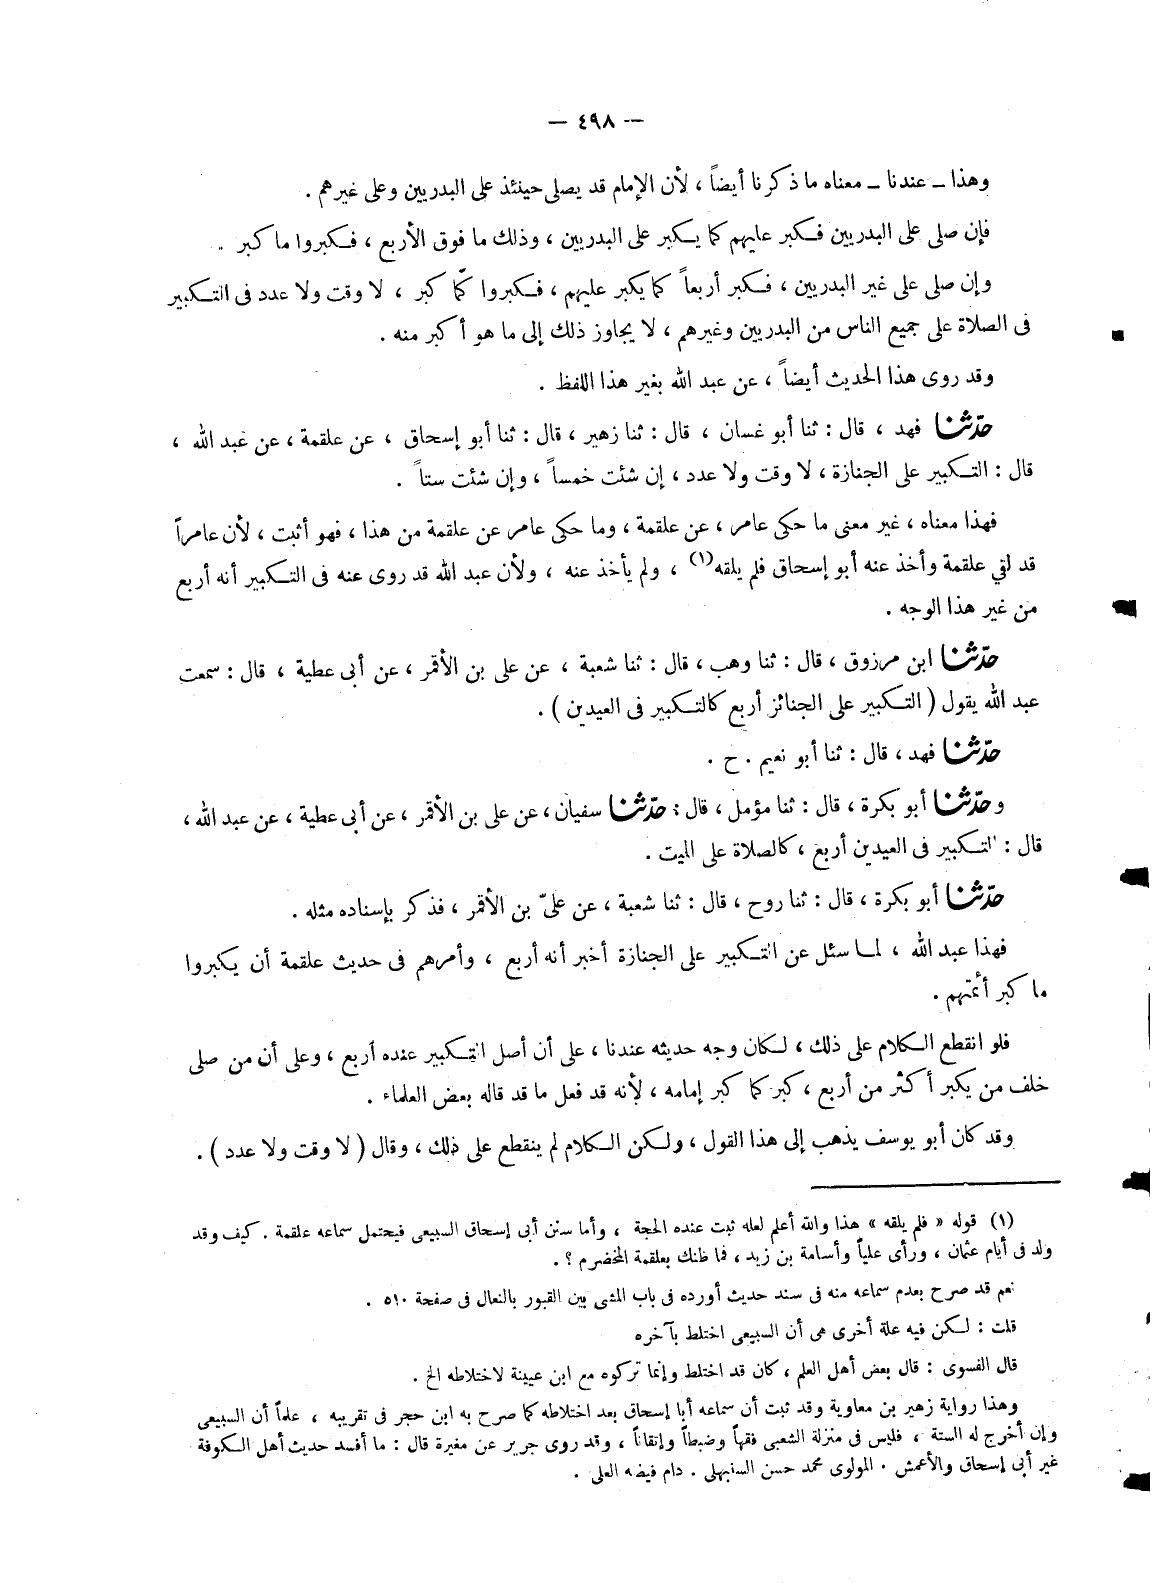 — ٤٩٨ —
وهذا ــ عندنا ــ معناه ما ذكرنا أيضاً ، لأن الإمام قد يصلى حينئذ على البدريين وعلى غيرهم .
فإن صلى على البدريين فكبر عليهم كما يكبر على البدريين ، وذلك ما فوق الأربع ، فكبروا ما كبر .
وإن صلى على غير البدريين ، فكبر أربعاً كما يكبر عليهم ، فكبروا كما كبر ، لا وقت ولا عدد فى التكبير
فى الصلاة على جميع الناس من البدريين وغيرهم ، لا يجاوز ذلك إلى ما هو أكبر منه .
وقد روى هذا الحديث أيضاً ، عن عبد الله بغير هذا اللفظ .
حدّثنا فهد ، قال : ثنا أبو غسان ، قال : ثنا زهير ، قال : ثنا أبو إسحاق ، عن علقمة ، عن عبد الله ،
قال : التكبير على الجنازة ، لا وقت ولا عدد ، إن شئت خمساً ، وإن شئت ستاً .
فهذا معناه ، غير معنى ما حكى عامر ، عن علقمة ، وما حكى عامر عن علقمة من هذا ، فهو أثبت ، لأن عامراً
قد لقي علقمة وأخذ عنه أبو إسحاق فلم يلقه(١) ، ولم يأخذ عنه ، ولأن عبد الله قد روى عنه فى التكبير أنه أربع
من غير هذا الوجه .
حدّثنا ابن مرزوق ، قال : ثنا وهب ، قال : ثنا شعبة ، عن على بن الأقمر ، عن أبى عطية ، قال : سمعت
عبد الله يقول ( التكبير على الجنائز أربع كالتكبير فى العيدين ) .
حدّثنا فهد ، قال : ثنا أبو نعيم . ح .
وحدّثنا أبو بكرة ، قال : ثنا مؤمل ، قال : حدّثنا سفيان ، عن على بن الأقمر ، عن أبى عطية ، عن عبد الله ،
قال : التكبير فى العيدين أربع ، كالصلاة على الميت .
حدّثنا أبو بكرة ، قال : ثنا روح ، قال : ثنا شعبة ، عن علىّ بن الأقمر ، فذكر بإسناده مثله .
فهذا عبد الله ، لما سئل عن التكبير على الجنازة أخبر أنه أربع ، وأمرهم فى حديث علقمة أن يكبروا
ما كبر أئمتهم .
فلو انقطع الكلام على ذلك ، لكان وجه حديثه عندنا ، على أن أصل التكبير عنده أربع ، وعلى أن من صلى
خلف من يكبر أكثر من أربع ، كبر كما كبر إمامه ، لأنه قد فعل ما قد قاله بعض العلماء .
وقد كان أبو يوسف يذهب إلى هذا القول ، ولكن الكلام لم ينقطع على ذلك ، وقال ( لا وقت ولا عدد ) .
(١) قوله « فلم يلقه » هذا والله أعلم لعله ثبت عنده الحجة ، وأما سنن أبى إسحاق السبيعى فيحتمل سماعه علقمة . كيف وقد
ولد فى أيام عثمان ، ورأى علياً وأسامة بن زيد ، فما ظنك بعلقمة المخضرم ؟ .
نعم قد صرح بعدم سماعه منه فى سند حديث أورده فى باب المشى بين القبور بالنعال فى صفحة ٥١٠ .
قلت : لكن فيه علة أخرى هى أن السبيعى اختلط بآخره
قال الفسوى : قال بعض أهل العلم ، كان قد اختلط وإنما تركوه مع ابن عيينة لاختلاطه الخ .
وهذا رواية زهير بن معاوية وقد ثبت أن سماعه أبا إسحاق بعد اختلاطه كما صرح به ابن حجر فى تقريبه ، علماً أن السبيعى
وإن أخرج له الستة ، فليس فى منزلة الشعبى فقهاً وضبطاً وإتقاناً ، وقد روى جرير عن مغيرة قال : ما أفسد حديث أهل الكوفة
غير أبى إسحاق والأعمش . المولوى محمد حسن السنبهلى . دام فيضه العلى .